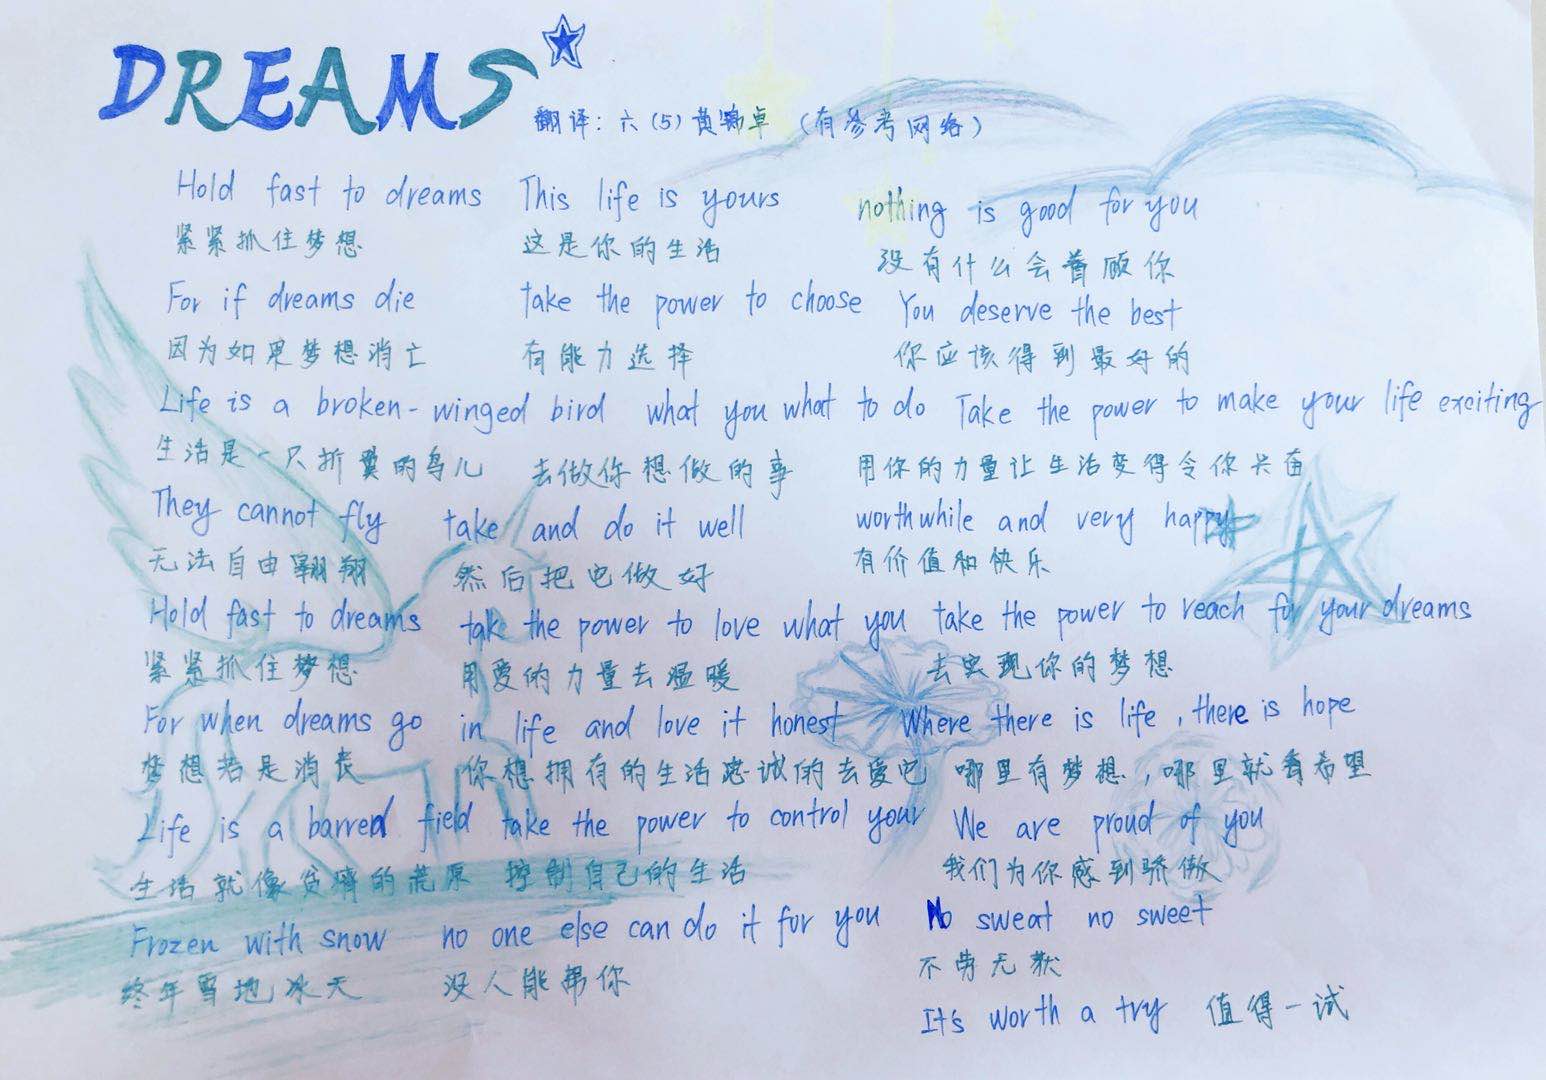 DREAMS
翻译：六（5）黄锦卓（有参考网络）
Hold fast to dreams
紧紧抓住梦想
For if dreams die
因为如果梦想消亡
Life is a broken-winged bird
生活是一只折翼的鸟儿
They cannot fly
无法自由翱翔
Hold fast to dreams
紧紧抓住梦想
For when dreams go
梦想若是消丧
Life is a barred field
生活就像贫瘠的荒原
Frozen with snow
终年雪地冰天
This life is yours
这是你的生活
take the power to choose
有能力选择
what you what to do
去做你想做的事
take and do it well
然后把它做好
take the power to love what you
用爱的力量去温暖
in life and love it honest
你想拥有的生活忠诚的去爱它
take the power to control your
控制自己的生活
no one else can do it for you
没人能帮你
nothing is good for you
没有什么会着顾你
You deserve the best
你应该得到最好的
Take the power to make your life exciting
用你的力量让生活变得令你兴奋
worthwhile and very happy
有价值和快乐
take the power to reach for your dreams
去实现你的梦想
Where there is life, there is hope
哪里有梦想，哪里就有希望
We are proud of you
我们为你感到骄傲
No sweat no sweet
不劳无获
It's worth a try 值得一试